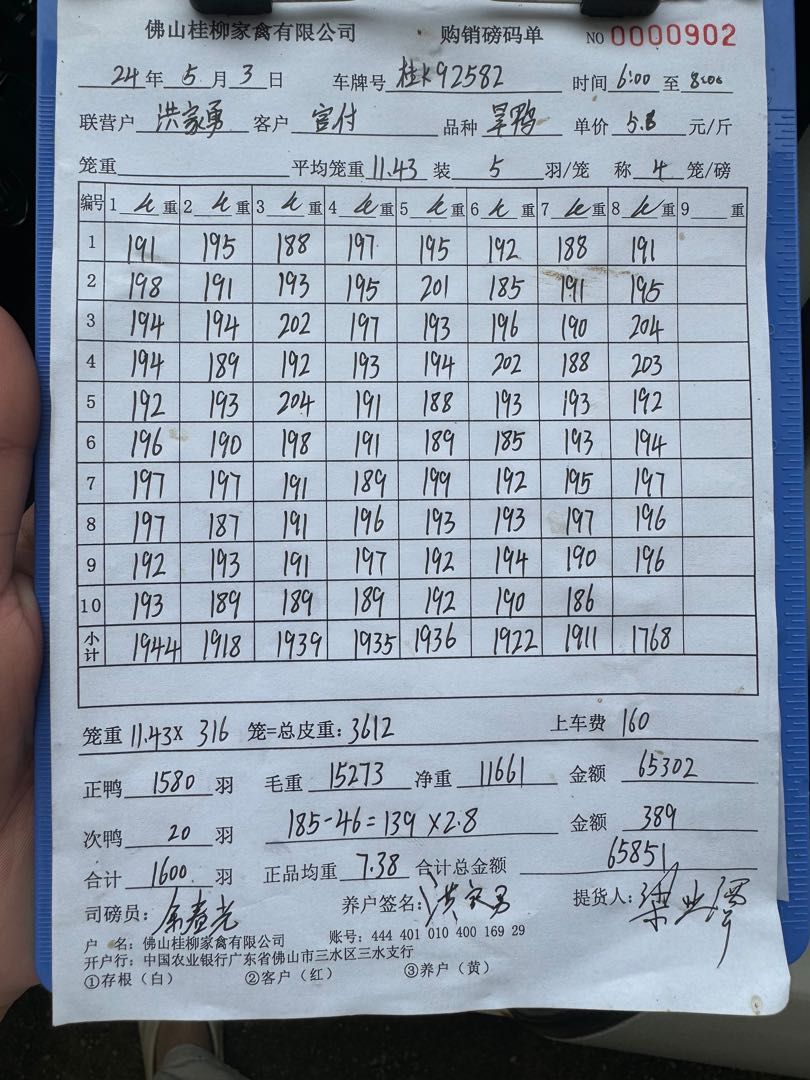 佛山桂柳家禽有限公司 购销磅码单 NO 0000902
24年5月3日 车牌号 桂K92582 时间 6:00 至 8:00
联营户 洪家勇 客户 富付 品种 旱鸭 单价 5.6 元/斤
笼重 平均笼重 11.43 装 5 羽/笼 称 4 笼/磅
编号 1 毛重 2 毛重 3 毛重 4 毛重 5 毛重 6 毛重 7 毛重 8 毛重 9 重
1 191 195 188 197 195 192 188 191
2 198 191 193 195 201 185 191 195
3 194 194 202 197 193 196 190 204
4 194 189 192 193 194 202 188 203
5 192 193 204 191 188 193 193 192
6 196 190 198 191 189 185 193 194
7 197 197 191 189 199 192 195 197
8 197 187 191 196 193 193 197 196
9 192 193 191 197 192 194 190 196
10 193 189 189 189 192 190 186
小计 1944 1918 1939 1935 1936 1922 1911 1768
笼重 11.43X 316 笼=总皮重:3612 上车费 160
正鸭 1580 羽 毛重 15273 净重 11661 金额 65302
次鸭 20 羽 185-46=139 X2.8 金额 389
合计 1600 羽 正品均重 7.38 合计总金额 65851
司磅员: 余春光 养户签名: 洪家勇 提货人:
户 名:佛山桂柳家禽有限公司 账号:444 401 010 400 169 29
开户行:中国农业银行广东省佛山市三水区三水支行
①存根(白) ②客户(红) ③养户(黄)